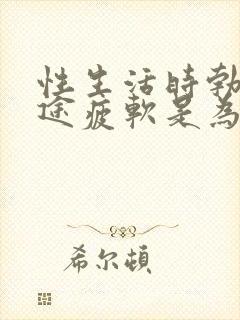 性生活時勃
途疲軟是為
希尔頓